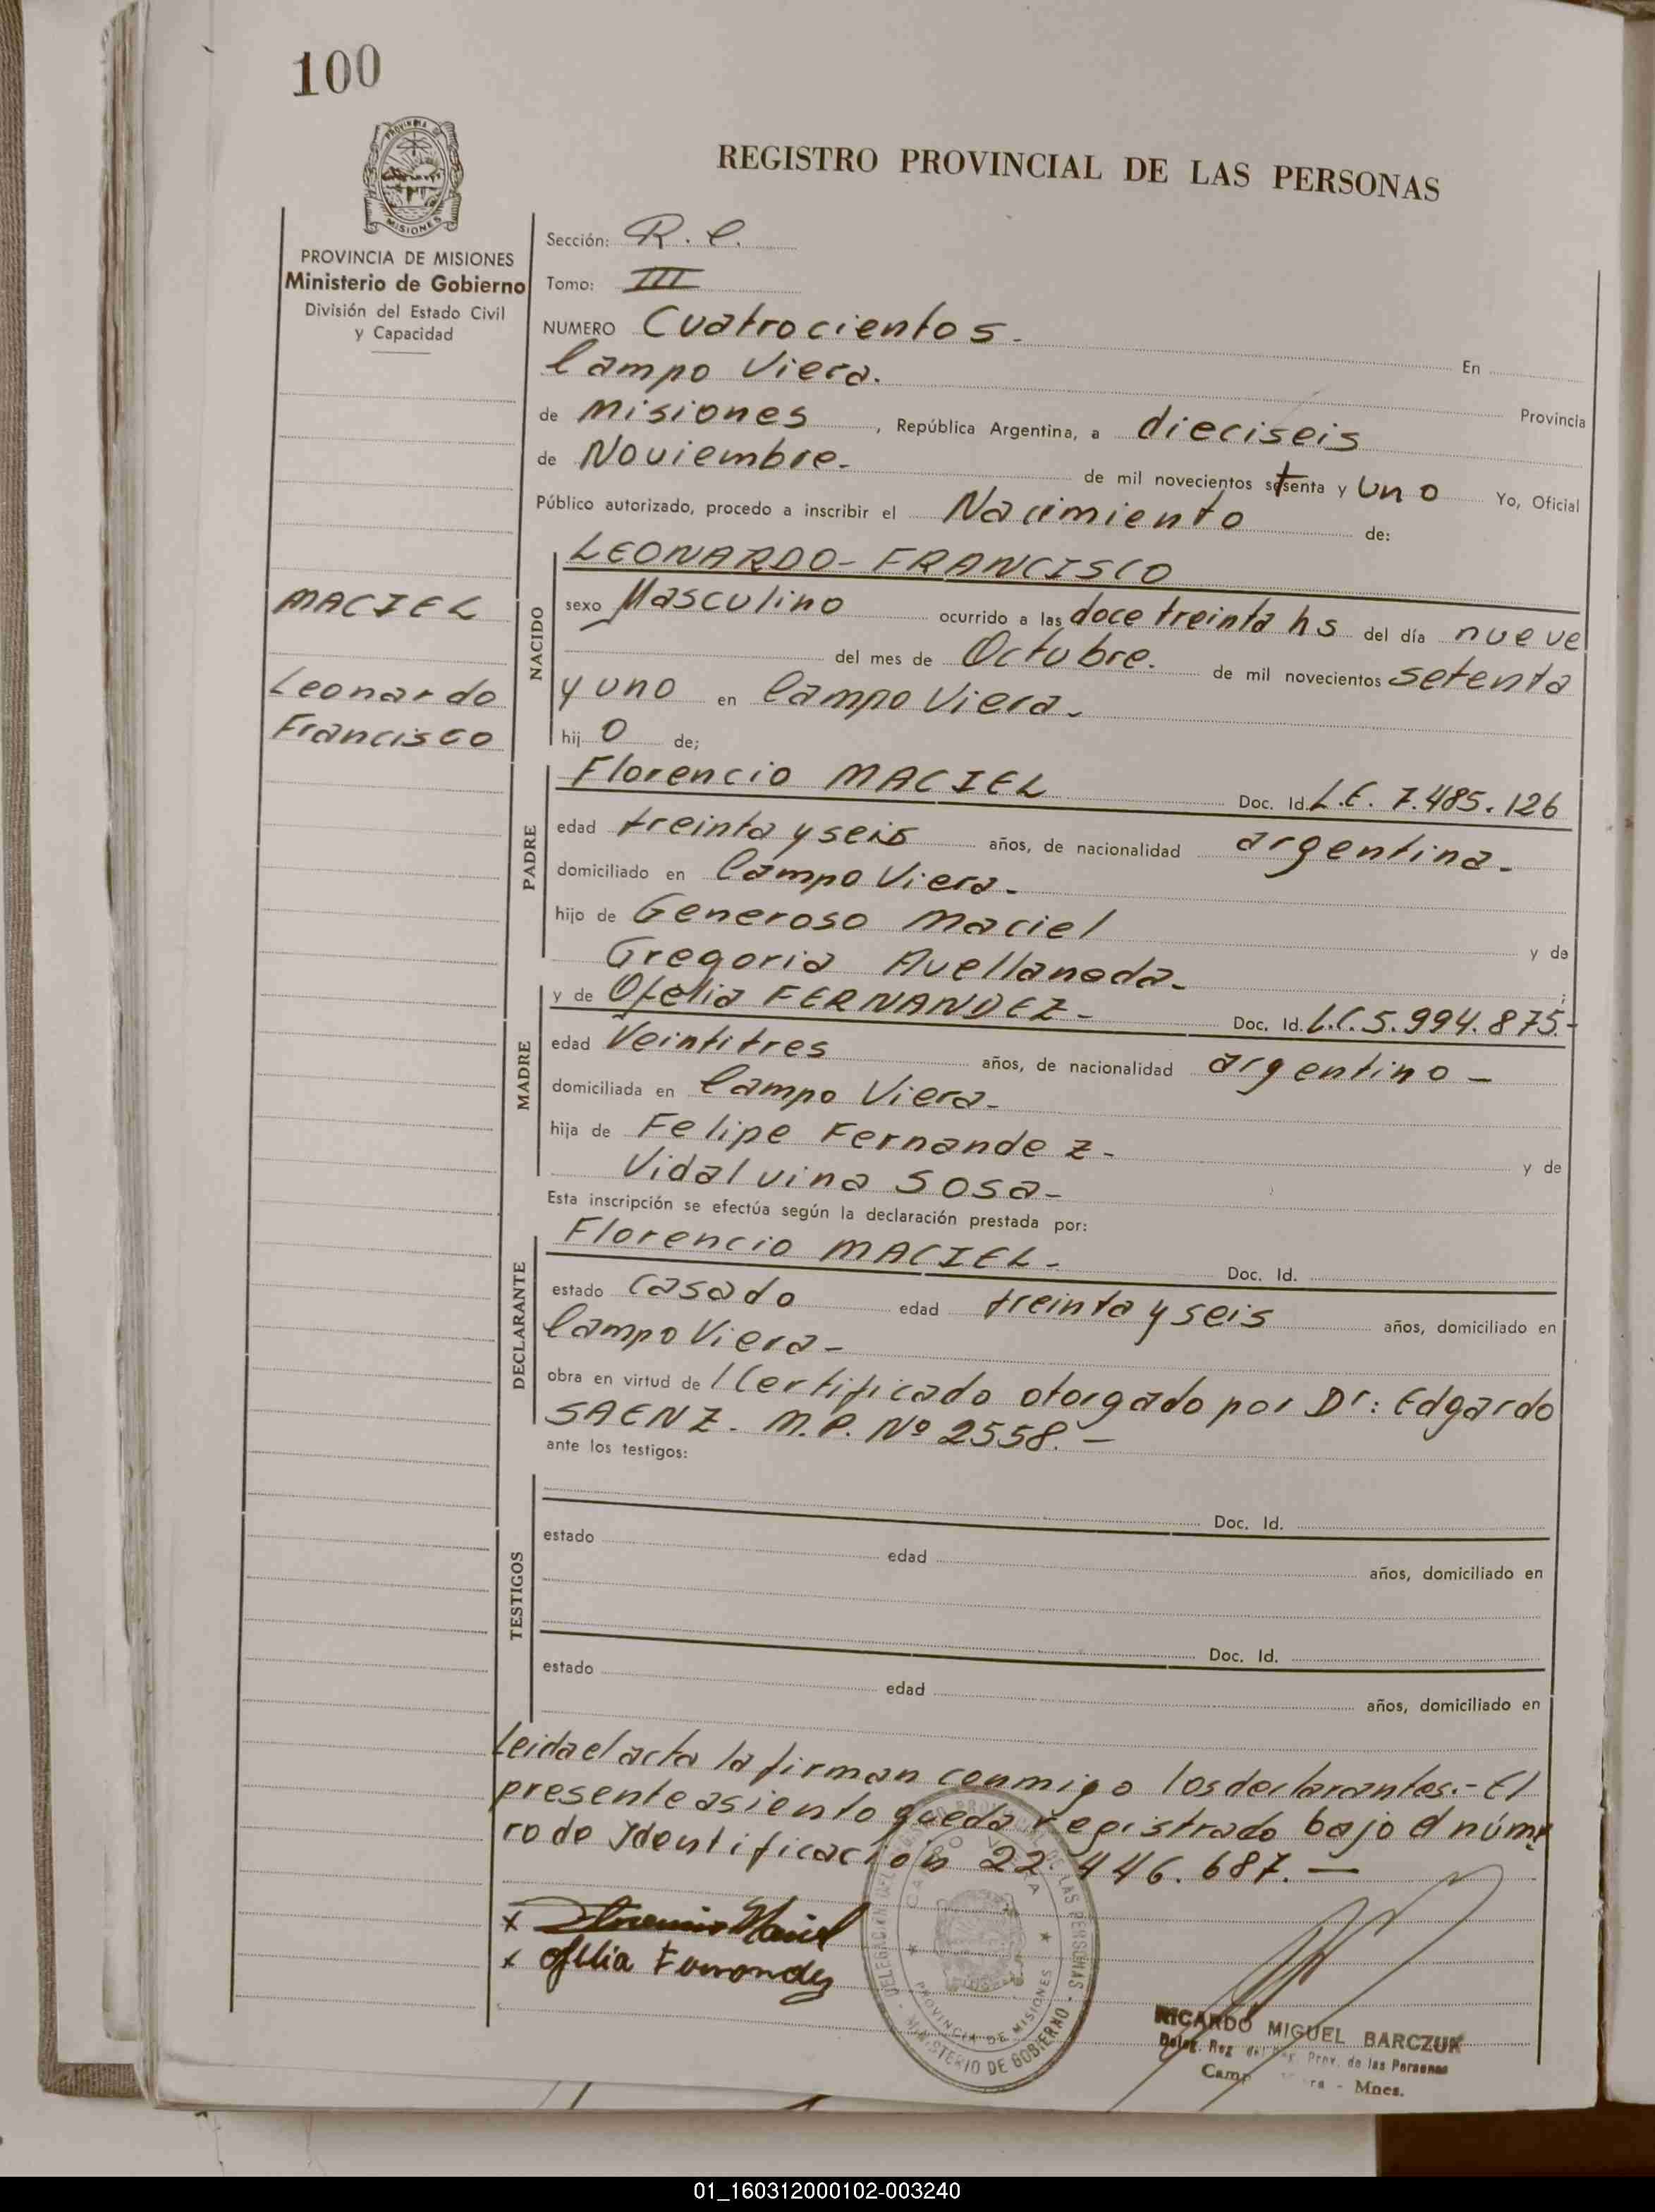 100
PROVINCIA DE
MISIONES
PROVINCIA DE MISIONES
Ministerio de Gobierno
División del Estado Civil
y Capacidad
MACIEL
Leonardo
Francisco
REGISTRO PROVINCIAL DE LAS PERSONAS
Sección: R.C.
Tomo: III
NUMERO Cuatrocientos. En
Campo Viera. Provincia
de Misiones, República Argentina, a dieciseis
de Noviembre. de mil novecientos setenta y uno Yo, Oficial
Público autorizado, procedo a inscribir el Nacimiento de:
NACIDO
LEONARDO-FRANCISCO
sexo Masculino ocurrido a las doce treinta hs del día nueve
del mes de Octubre. de mil novecientos setenta
y uno en Campo Viera.
hijo de;
PADRE
Florencio MACIEL Doc. Id. L.E. 7.485.126
edad treinta y seis años, de nacionalidad argentina.
domiciliado en Campo Viera.
hijo de Generoso Maciel y de
Gregoria Avellaneda. ;
MADRE
y de Ofelia FERNANDEZ- Doc. Id. L.C. 5.994.875.-
edad Veintitres años, de nacionalidad argentino-
domiciliada en Campo Viera-
hija de Felipe Fernandez- y de
Vidalvina Sosa-
Esta inscripción se efectúa según la declaración prestada por:
DECLARANTE
Florencio MACIEL- Doc. Id.
estado Casado edad treinta y seis años, domiciliado en
Campo Viera-
obra en virtud de 1 Certificado otorgado por Dr: Edgardo
SAENZ. M.P. Nº 2558.-
ante los testigos:
TESTIGOS
Doc. Id.
estado edad años, domiciliado en
Doc. Id.
estado edad años, domiciliado en
Leida el acta la firman conmigo los declarantes.- El
presente asiento queda registrado bajo el núme
ro de Identificación 22.446.687.—
x Florencio Maciel
x Ofelia Fernandez
DELEGACION DEL REGISTRO PROVINCIAL DE LAS PERSONAS
CAMPO VIERA
PROVINCIA DE MISIONES
MINISTERIO DE GOBIERNO
RICARDO MIGUEL BARCZUK
Deleg. Reg. del Reg. Prov. de las Personas
Mnes.
01_160312000102-003240